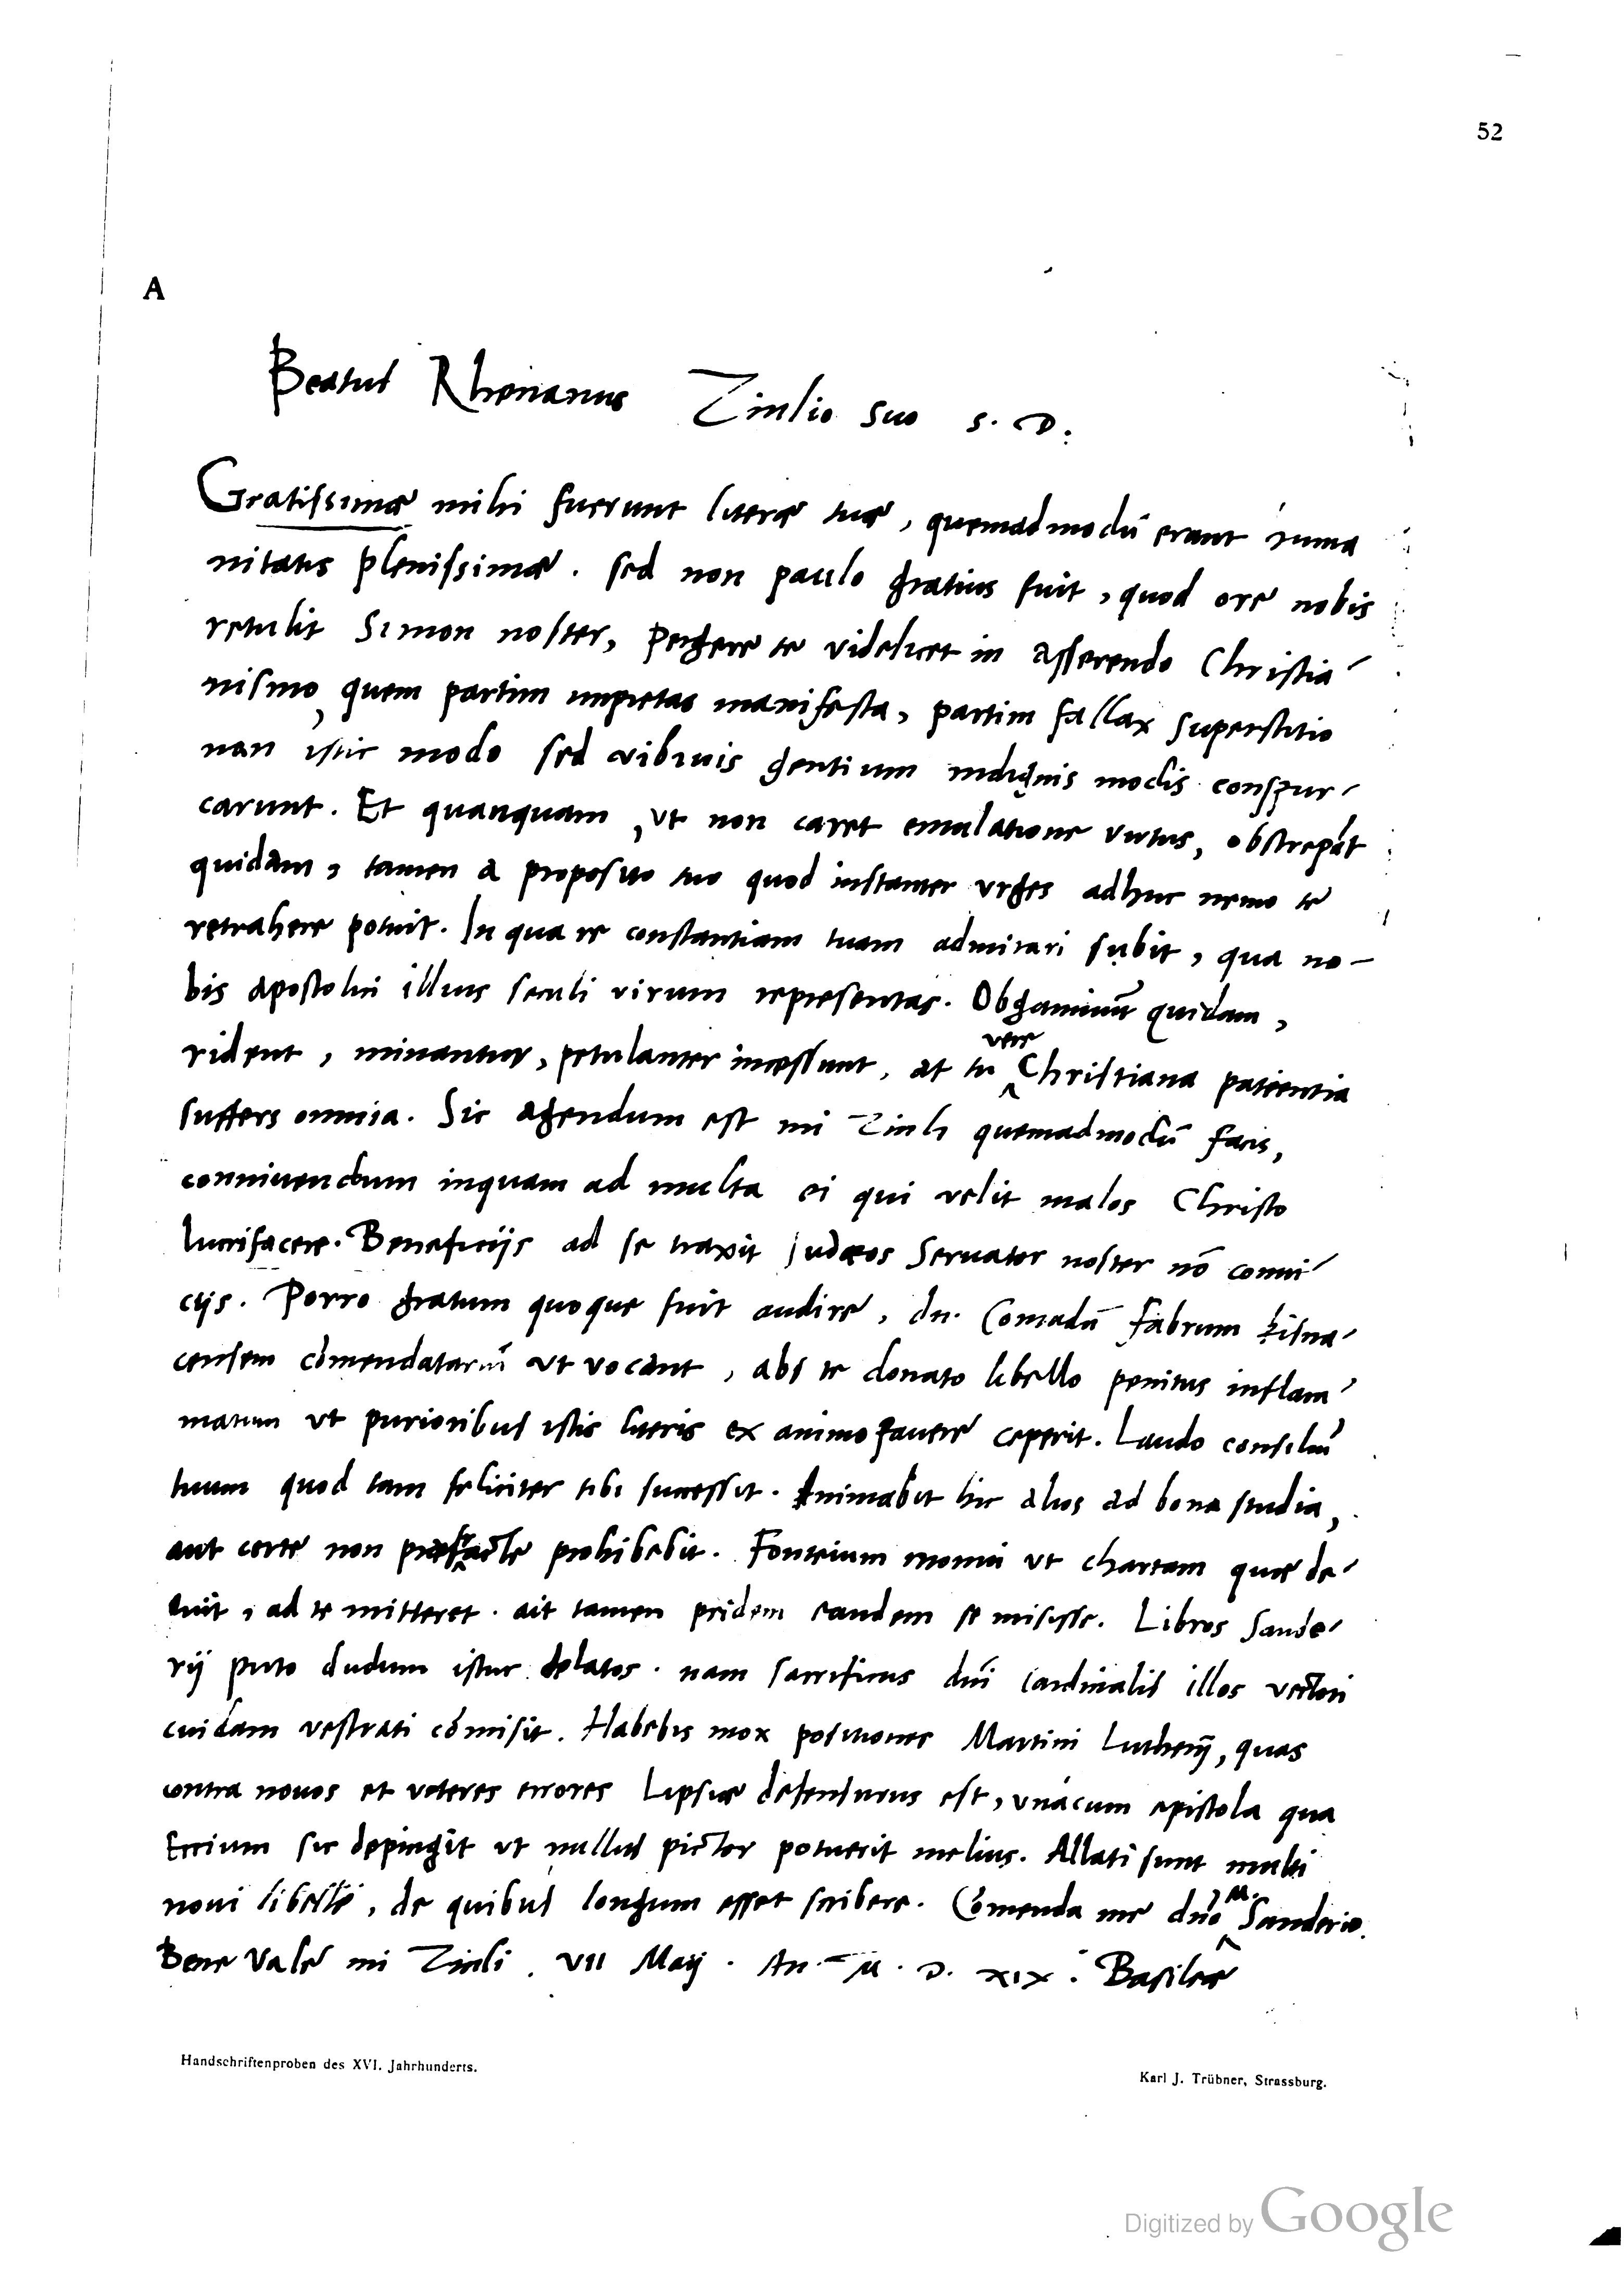 52
A
Beatus Rhenanus Zinlio suo s. D.
Gratissimæ mihi fuerunt literæ tuæ, quemadmodū erant huma
nitatis plenissimæ. sed non paulo gratius fuit, quod ore nobis
retulit Simon noster, pergere te videlicet in asserendo Christia-
nismo, quem partim impietas manifesta, partim fallax superstitio
non istic modo sed vibiuis gentium indignis modis conspur-
carunt. Et quanquam, vt non caret emulatione virtus, obstrepāt
quidam, tamen a proposito tuo quod instanter vrges adhuc nemo te
retrahere potuit. In qua re constantiam tuam admirari subit, qua no-
bis apostolici illius seculi virum representas. Obganniūt quidam,
rident, minantur, petulanter incessunt, at tu vere Christiana patientia
suffers omnia. Sic agendum est mi Zinli quemadmodū facis,
conniuendum inquam ad multa ei qui velit malos Christo
lucrifacere. Beneficijs ad se traxit Judæos Seruator noster nō conui-
cijs. Porro gratum quoque fuit audire, dn. Conradū Fabrum kisna-
censem cōmendatariū vt vocant, abs te donato libello penitus inflam-
matum vt purioribus istis literis ex animo fauere ceperit. Laudo consiliū
tuum quod tam feliciter tibi successit. Animabit hic alios ad bona studia,
aut certe non præfracte prohibebit. Fonteium monui vt chartam quæ de-
fuit, ad te mitteret. ait tamen pridem eandem se misisse. Libros Sande-
rij puto dudum istuc delatos. nam sacrificus dn̄i Cardinalis illos vectori
cuidam vestrati cōmisit. Habebis mox positiones Martini Lutherij, quas
contra nouos et veteres errores Lipsiæ defensurus est, vnácum epistola qua
Eccium sic depingit vt nullus pictor potuerit melius. Allati sunt multi
noui libelli, de quibus longum esset scribere. Cōmenda me dn̄o M. Sanderio.
Bene Vale mi Zinli. VII Maij. An. M. D. XIX. Basileæ
Handschriftenproben des XVI. Jahrhunderts.
Karl J. Trübner, Strassburg.
Digitized by Google